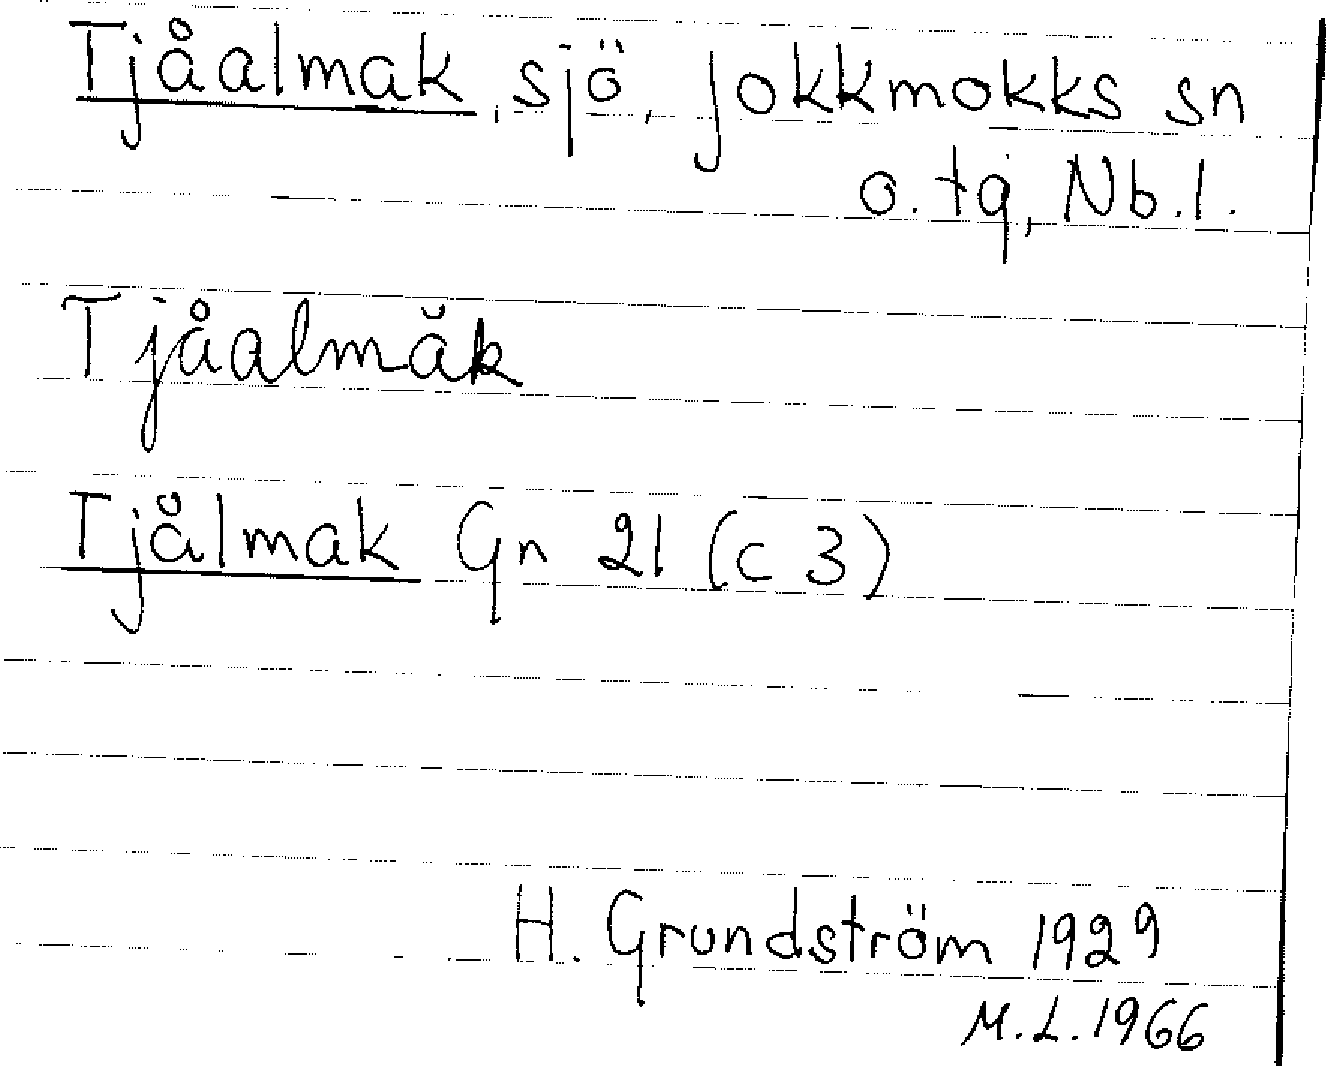 Tjåalmak, sjö, Jokkmokks sn
o. tg, Nb.l.
Tjåalmăk
Tjålmak Gn 21 (c 3)
H. Grundström 1929
M.L. 1966